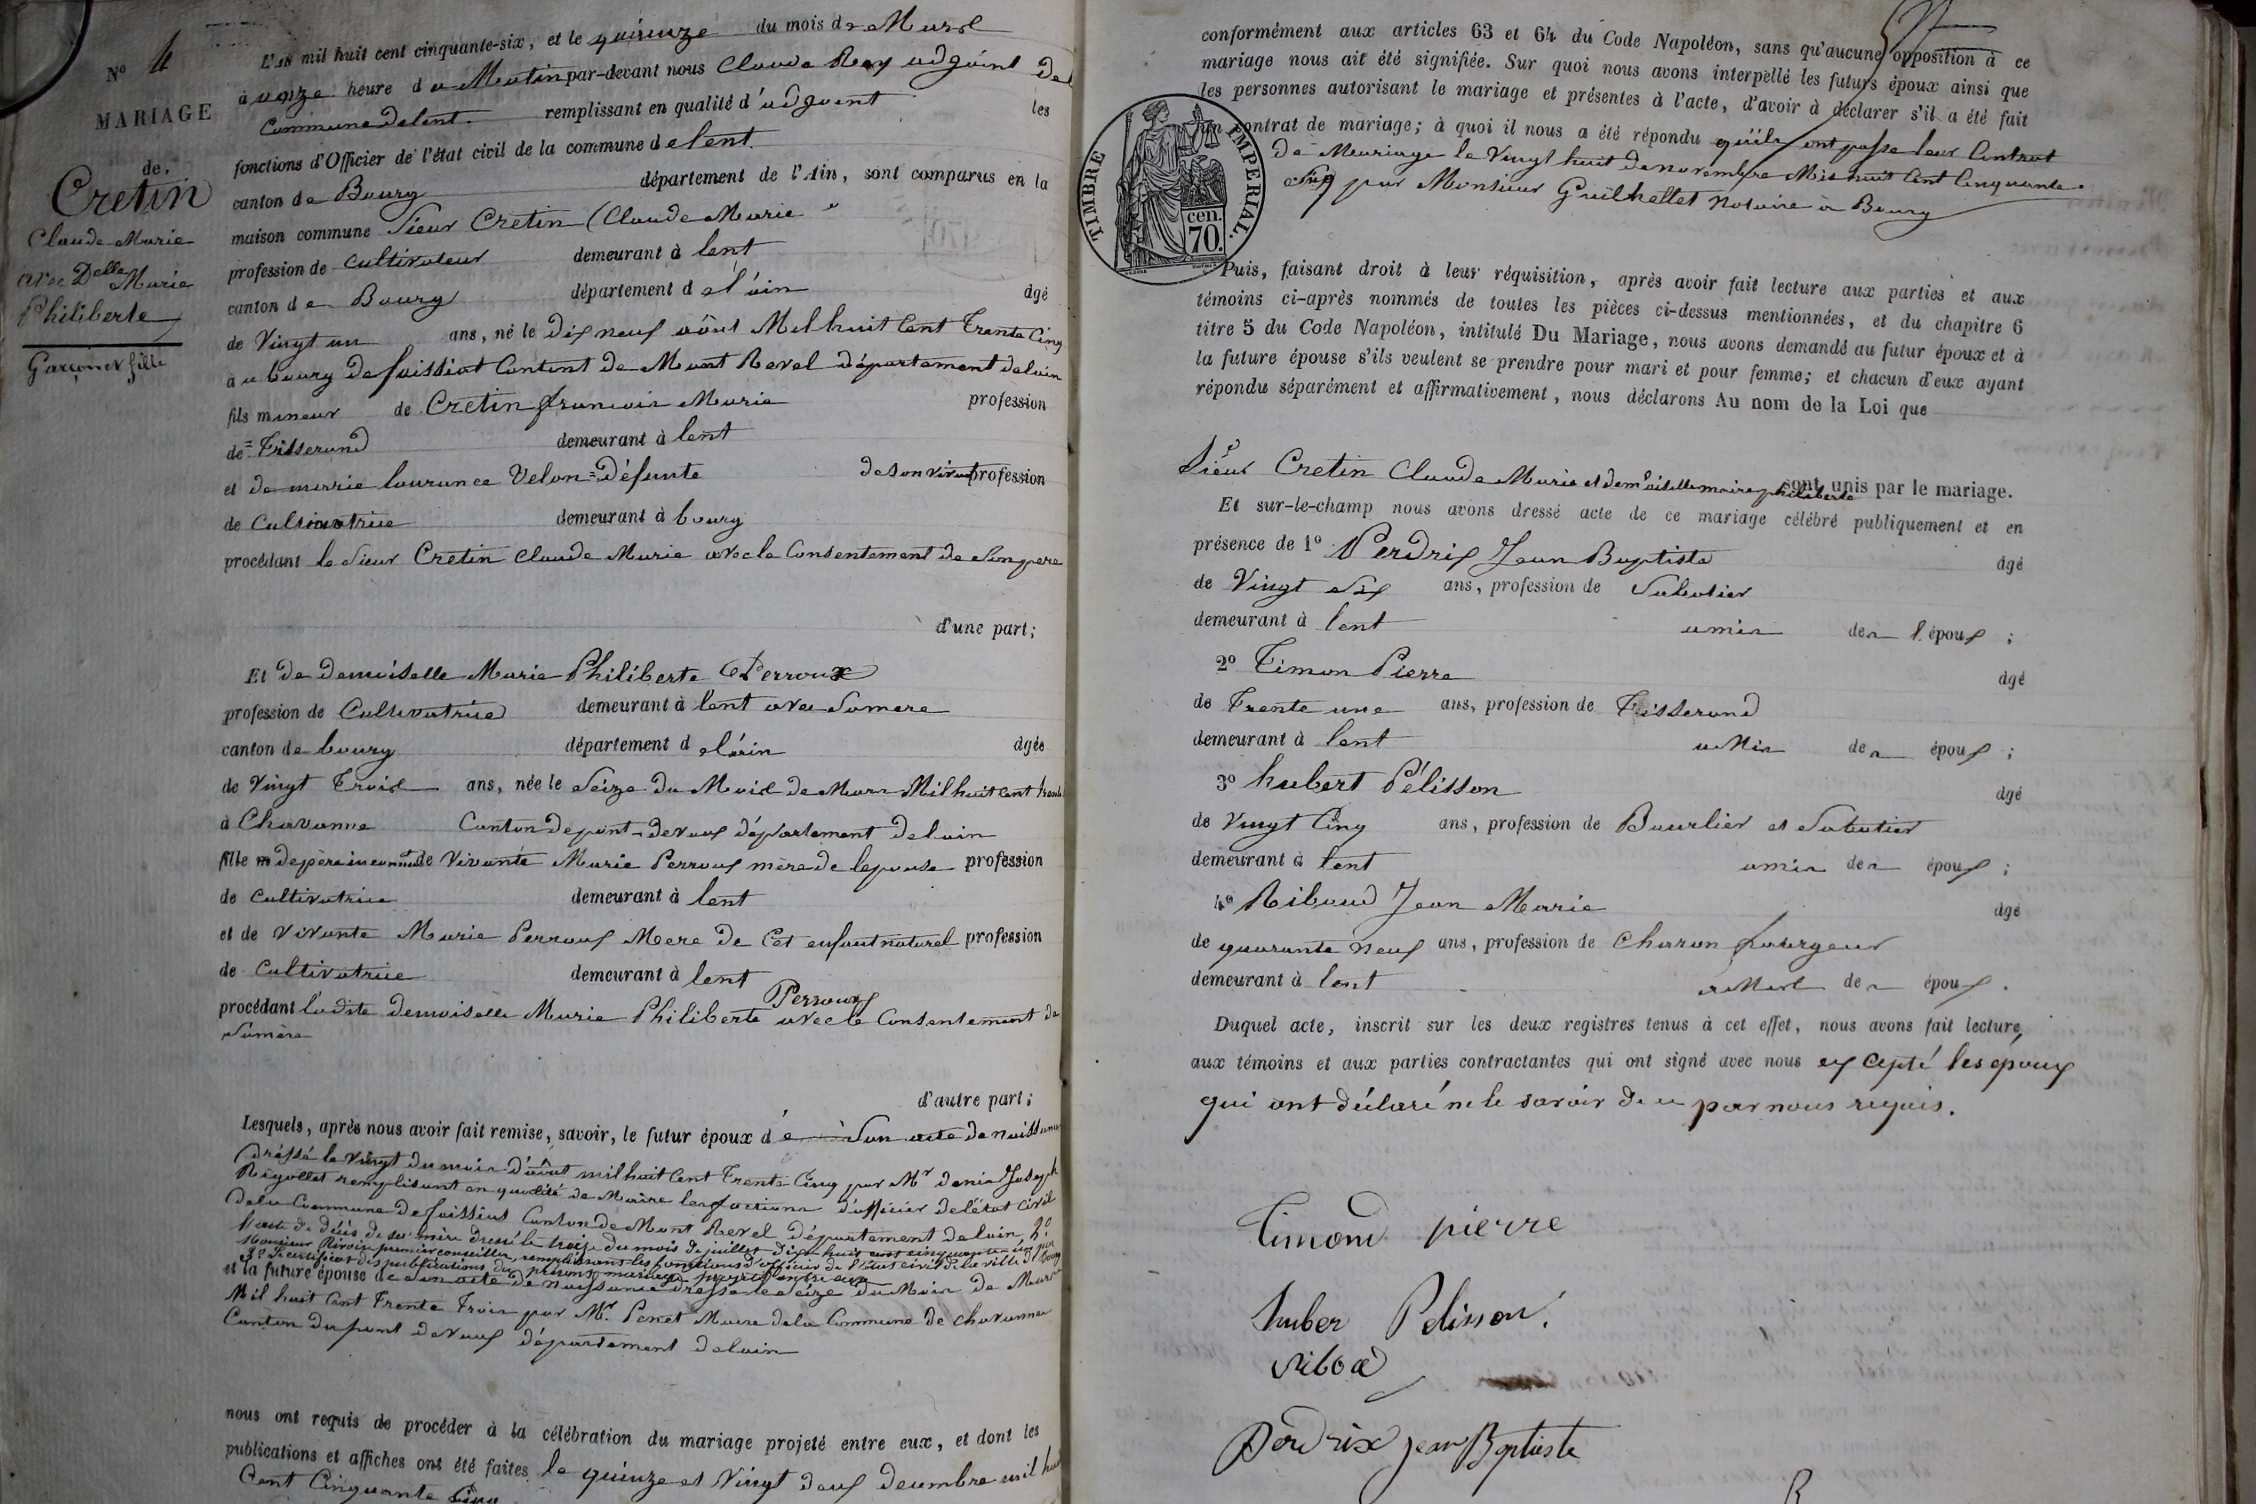 N° 4
MARIAGE
de
Cretin
Claude Marie
avec Delle Marie
Philiberte
Garçon et fille
L'an mil huit cent cinquante-six, et le quinze du mois de Mars
à onze heure du Matin par-devant nous Claude Rey adjoint de la
Commune de lent. remplissant en qualité d'adjoint les
fonctions d'Officier de l'état civil de la commune de lent.
canton de Bourg département de l'Ain, sont comparus en la
maison commune Sieur Cretin (Claude Marie
profession de cultivateur demeurant à lent
canton de Bourg département de l'ain âgé
de Vingt un ans, né le dix neuf aôut Mil huit Cent Trente Cinq
à u bourg de foissiat Canton de Mont Revel département de lain
fils mineur de Cretin francois Marie profession
de Tisserand demeurant à lent
et de marrie laurance Velon défunte de son vivant profession
de Cultivatrice demeurant à bourg
procédant le Sieur Cretin Claude Marie avec le Consentement de Son pere
d'une part;
Et de demoiselle Marie Philiberte Perroux
profession de Cultivatrice demeurant à lent avec Sa mere
canton de bourg département de l'ain âgée
de Vingt Trois ans, née le Seize du Mois de Mars Mil huit Cent trente
à Chavanne Canton de pont-devaux département de lain
fille de père inconnu de Vivante Marie Perroux mère de lepouse profession
de cultivatrice demeurant à lent
et de Vivante Marie Perroux Mere de Cet enfant naturel profession
de Cultivatrice demeurant à lent
Perroux
procédant ladite demoiselle Marie Philiberte avec le Consentement de
Sa mère
d'autre part;
Lesquels, après nous avoir fait remise, savoir, le futur époux dé Son acte de naissance
dréssé le Vingt du mois d'aôut mil huit Cent Trente Cinq par Mr denis Joseph
Rigollet remplisant en qualité de Maire les foctions d'officier de l'état Civil
de la Commune de foissiat Canton de Mont Revel département de lain, 2°
l'acte de décès de sa mère dressé le trois du mois de juillet dix huit cent cinquante un par
Monsieur Rivoire premier conseiller, remplissant les fonctions d'officier de l'état civil de la ville de Bourg
3° Le certificat des publications du présent mariage projeté entre eux
et la future épouse de Son acte de naissance dresse le Seize du Mois de Mars
Mil huit Cent Trente Trois par Mr. Penet Maire de la Commune de Chavannes
Canton du pont devaux département de lain
nous ont requis de procéder à la célébration du mariage projeté entre eux, et dont les
publications et affiches ont été faites le quinze et Vingt deux decembre mil huit
Cent Cinquante Cinq
conformément aux articles 63 et 64 du Code Napoléon, sans qu'aucune opposition à ce
mariage nous ait été signifiée. Sur quoi nous avons interpellé les futurs époux ainsi que
les personnes autorisant le mariage et présentes à l'acte, d'avoir à déclarer s'il a été fait
un contrat de mariage; à quoi il nous a été répondu qu'ils ont passe leur Contrat
de Meariage le Vingt huit de novembre Mil huit Cent Cinquante
Cinq par Monsieur Guilhellet notaire à Bourg
TIMBRE IMPERIAL.
70 cen.
Puis, faisant droit à leur réquisition, après avoir fait lecture aux parties et aux
témoins ci-après nommés de toutes les pièces ci-dessus mentionnées, et du chapitre 6
titre 5 du Code Napoléon, intitulé Du Mariage, nous avons demandé au futur époux et à
la future épouse s'ils veulent se prendre pour mari et pour femme; et chacun d'eux ayant
répondu séparément et affirmativement, nous déclarons Au nom de la Loi que
Sieur Cretin Claude Marie et demoiselle marie philiberte sont unis par le mariage.
Et sur-le-champ nous avons dressé acte de ce mariage célébré publiquement et en
présence de 1° Perdrix Jean Baptiste âgé
de Vingt Six ans, profession de Sabotier
demeurant à lent amis des l'époux;
2° Timon Pierre âgé
de Trente une ans, profession de Tisserand
demeurant à lent amis des époux;
3° hubert Pélisson âgé
de Vingt Cinq ans, profession de Bourlier et Sabotier
demeurant à lent amis des époux;
4° Riboud Jean Marie âgé
de quarante neuf ans, profession de Charon forgeur
demeurant à lent des époux.
Duquel acte, inscrit sur les deux registres tenus à cet effet, nous avons fait lecture,
aux témoins et aux parties contractantes qui ont signé avec nous excepté les époux
qui ont déclaré ne le savoir de ce par nous requis.
Timond pierre
huber Pelisson
Perdrix jean Baptiste